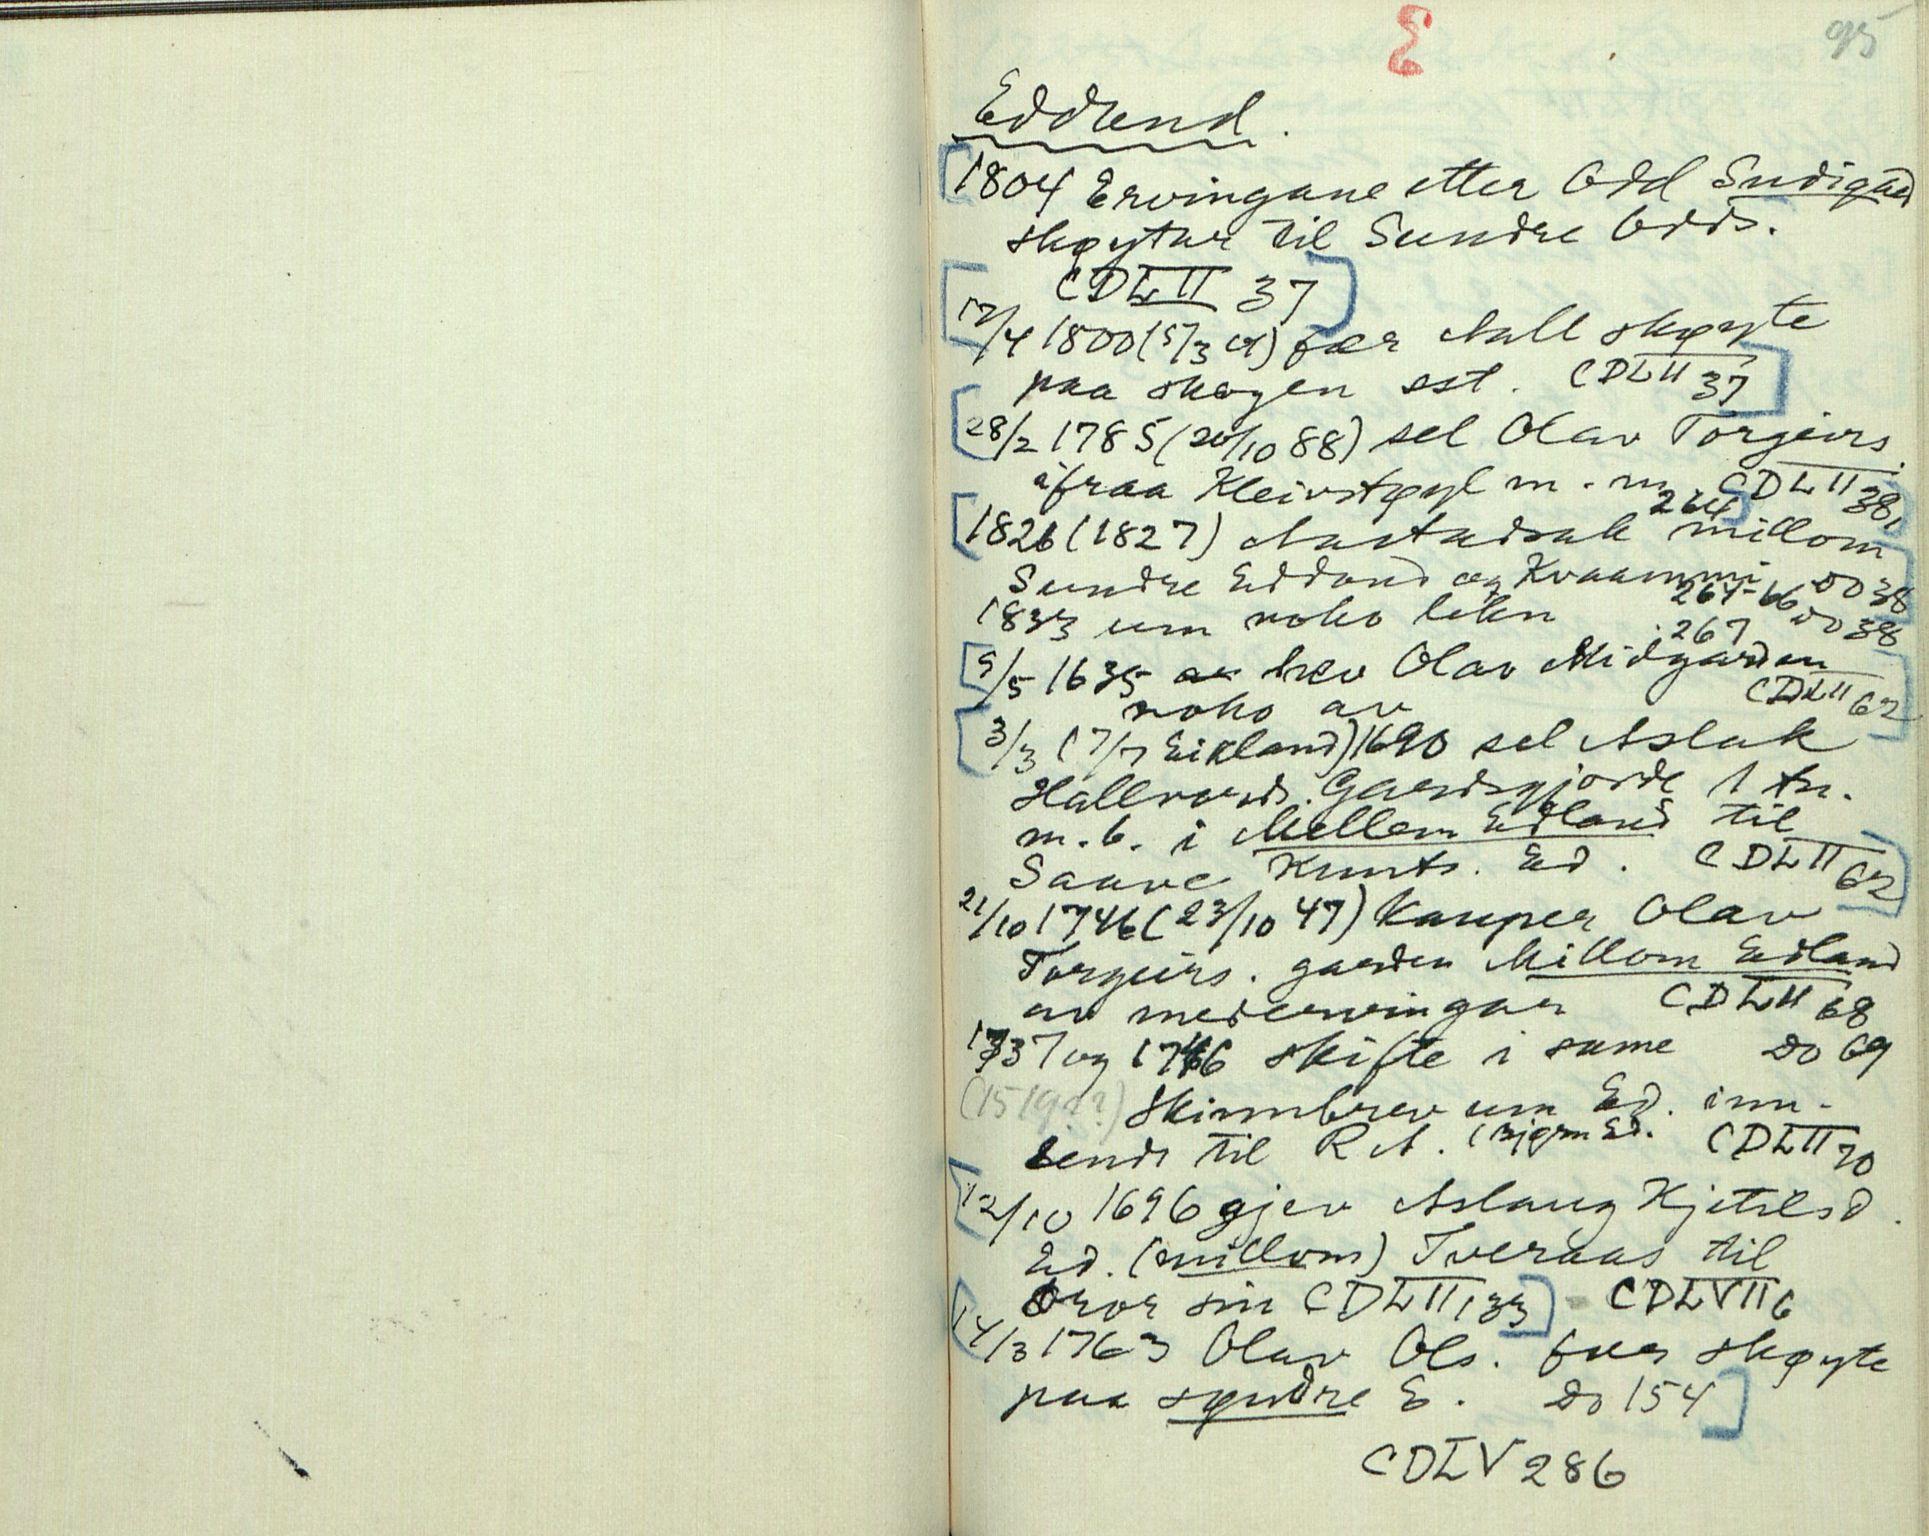 E
95
Eddlend.
1804 Ervingane etter Odd Sudigard
skøytar til Sundre Odds.
CDLII 37
12/4 1800 (5/3 01) fær Aall skøyte
paa skogen sst. CDLII 37
28/2 1785 (20/10 88) sel Olav Torgeirs.
ifraa Kleivstøyl m. m. CDLII 38,
264
1826 (1827) Aastadsak millom
Sundre Eddland og Kvaammi do 38
264-66
1833 um noko leken do 38
267
9/5 1635 hev Olav Midgarden
noko av CDLII 62
3/3 (7/7 Eikland) 1690 sel Aslak
Hallvords. Gardsgjorde 1 tn.
m. b. i Mellem Edland til
Saave Knuts. Ed. CDLII 62
21/10 1746 (23/10 47) kauper Olav
Torgeirs. garden Millom Edland
av medervingar CDLII 68
1737 og 1746 skifte i same do 69
(1519??) Skinnbrev um Ed. inn-
sendt til R A. (Bjørn Ed. CDLII 70
12/10 1696 gjev Aslaug Kjetilsd.
Ed. (millom) Tveraas til
bror sin CDLII, 133 CDLVII 6
14/3 1763 Olav Ols. fær skøyte
paa syndre E. do 154
CDLV 286